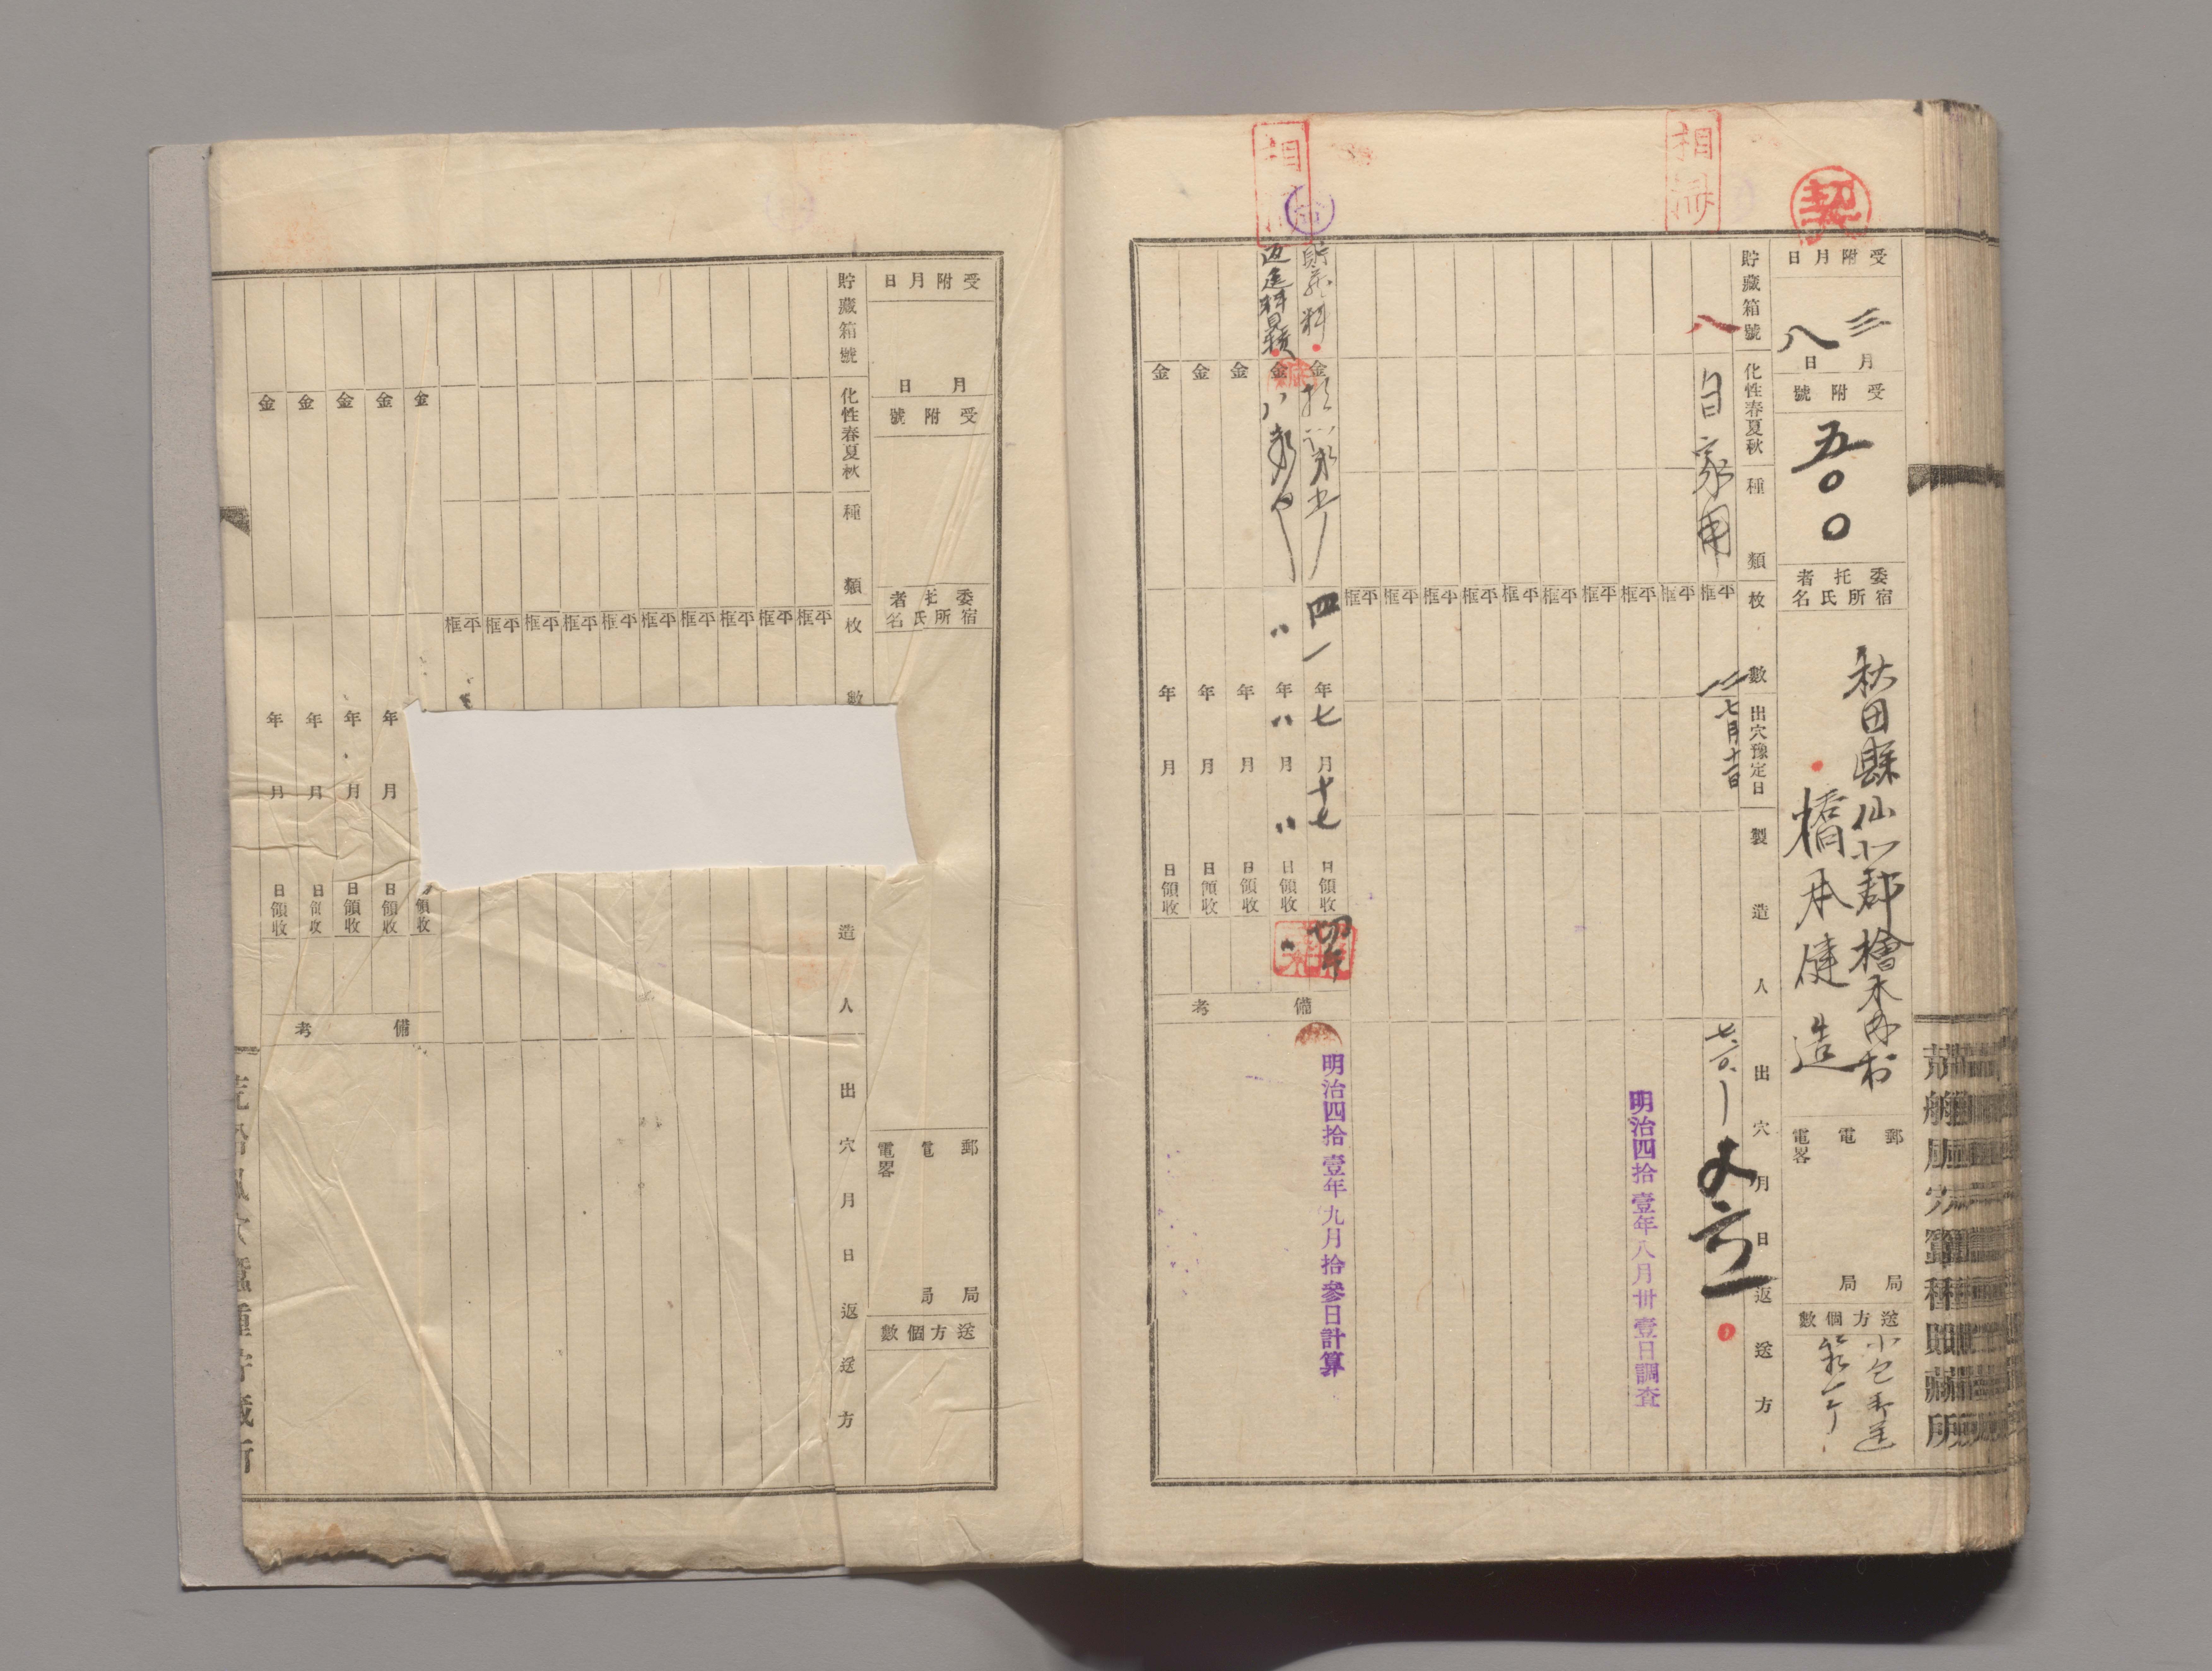 荒船風穴蠶種貯藏所
契
受附月日
三月
八日
受附號
五〇〇
委托者
宿所氏名
秋田縣仙北郡檜木内村
橋本健造
郵電
電畧
局
局
送方個數
小包
貯藏箱號
化性春夏秋種類
枚數
出穴豫定日
製造人
出穴月日返送方
相濟
八
白家用
平框
七月十一日
平框
平框
明治四拾壹年八月卅壹日調査
平框
平框
平框
平框
平框
平框
平框
平框
貯藏料
金
四一年七月十七日領收
相濟
返送料
金
年 月 日領收
金
年 月 日領收
金
年 月 日領收
金
年 月 日領收
備考
明治四拾壹年九月拾參日計算
受附月日
月
日
受附號
委托者
宿所氏名
郵電
電畧
局
局
送方個數
貯藏箱號
化性春夏秋種類
枚數
造人
出穴月日返送方
平框
平框
平框
平框
平框
平框
平框
平框
平框
平框
金
領收
金
年 月 日領收
金
年 月 日領收
金
年 月 日領收
金
年 月 日領收
備考